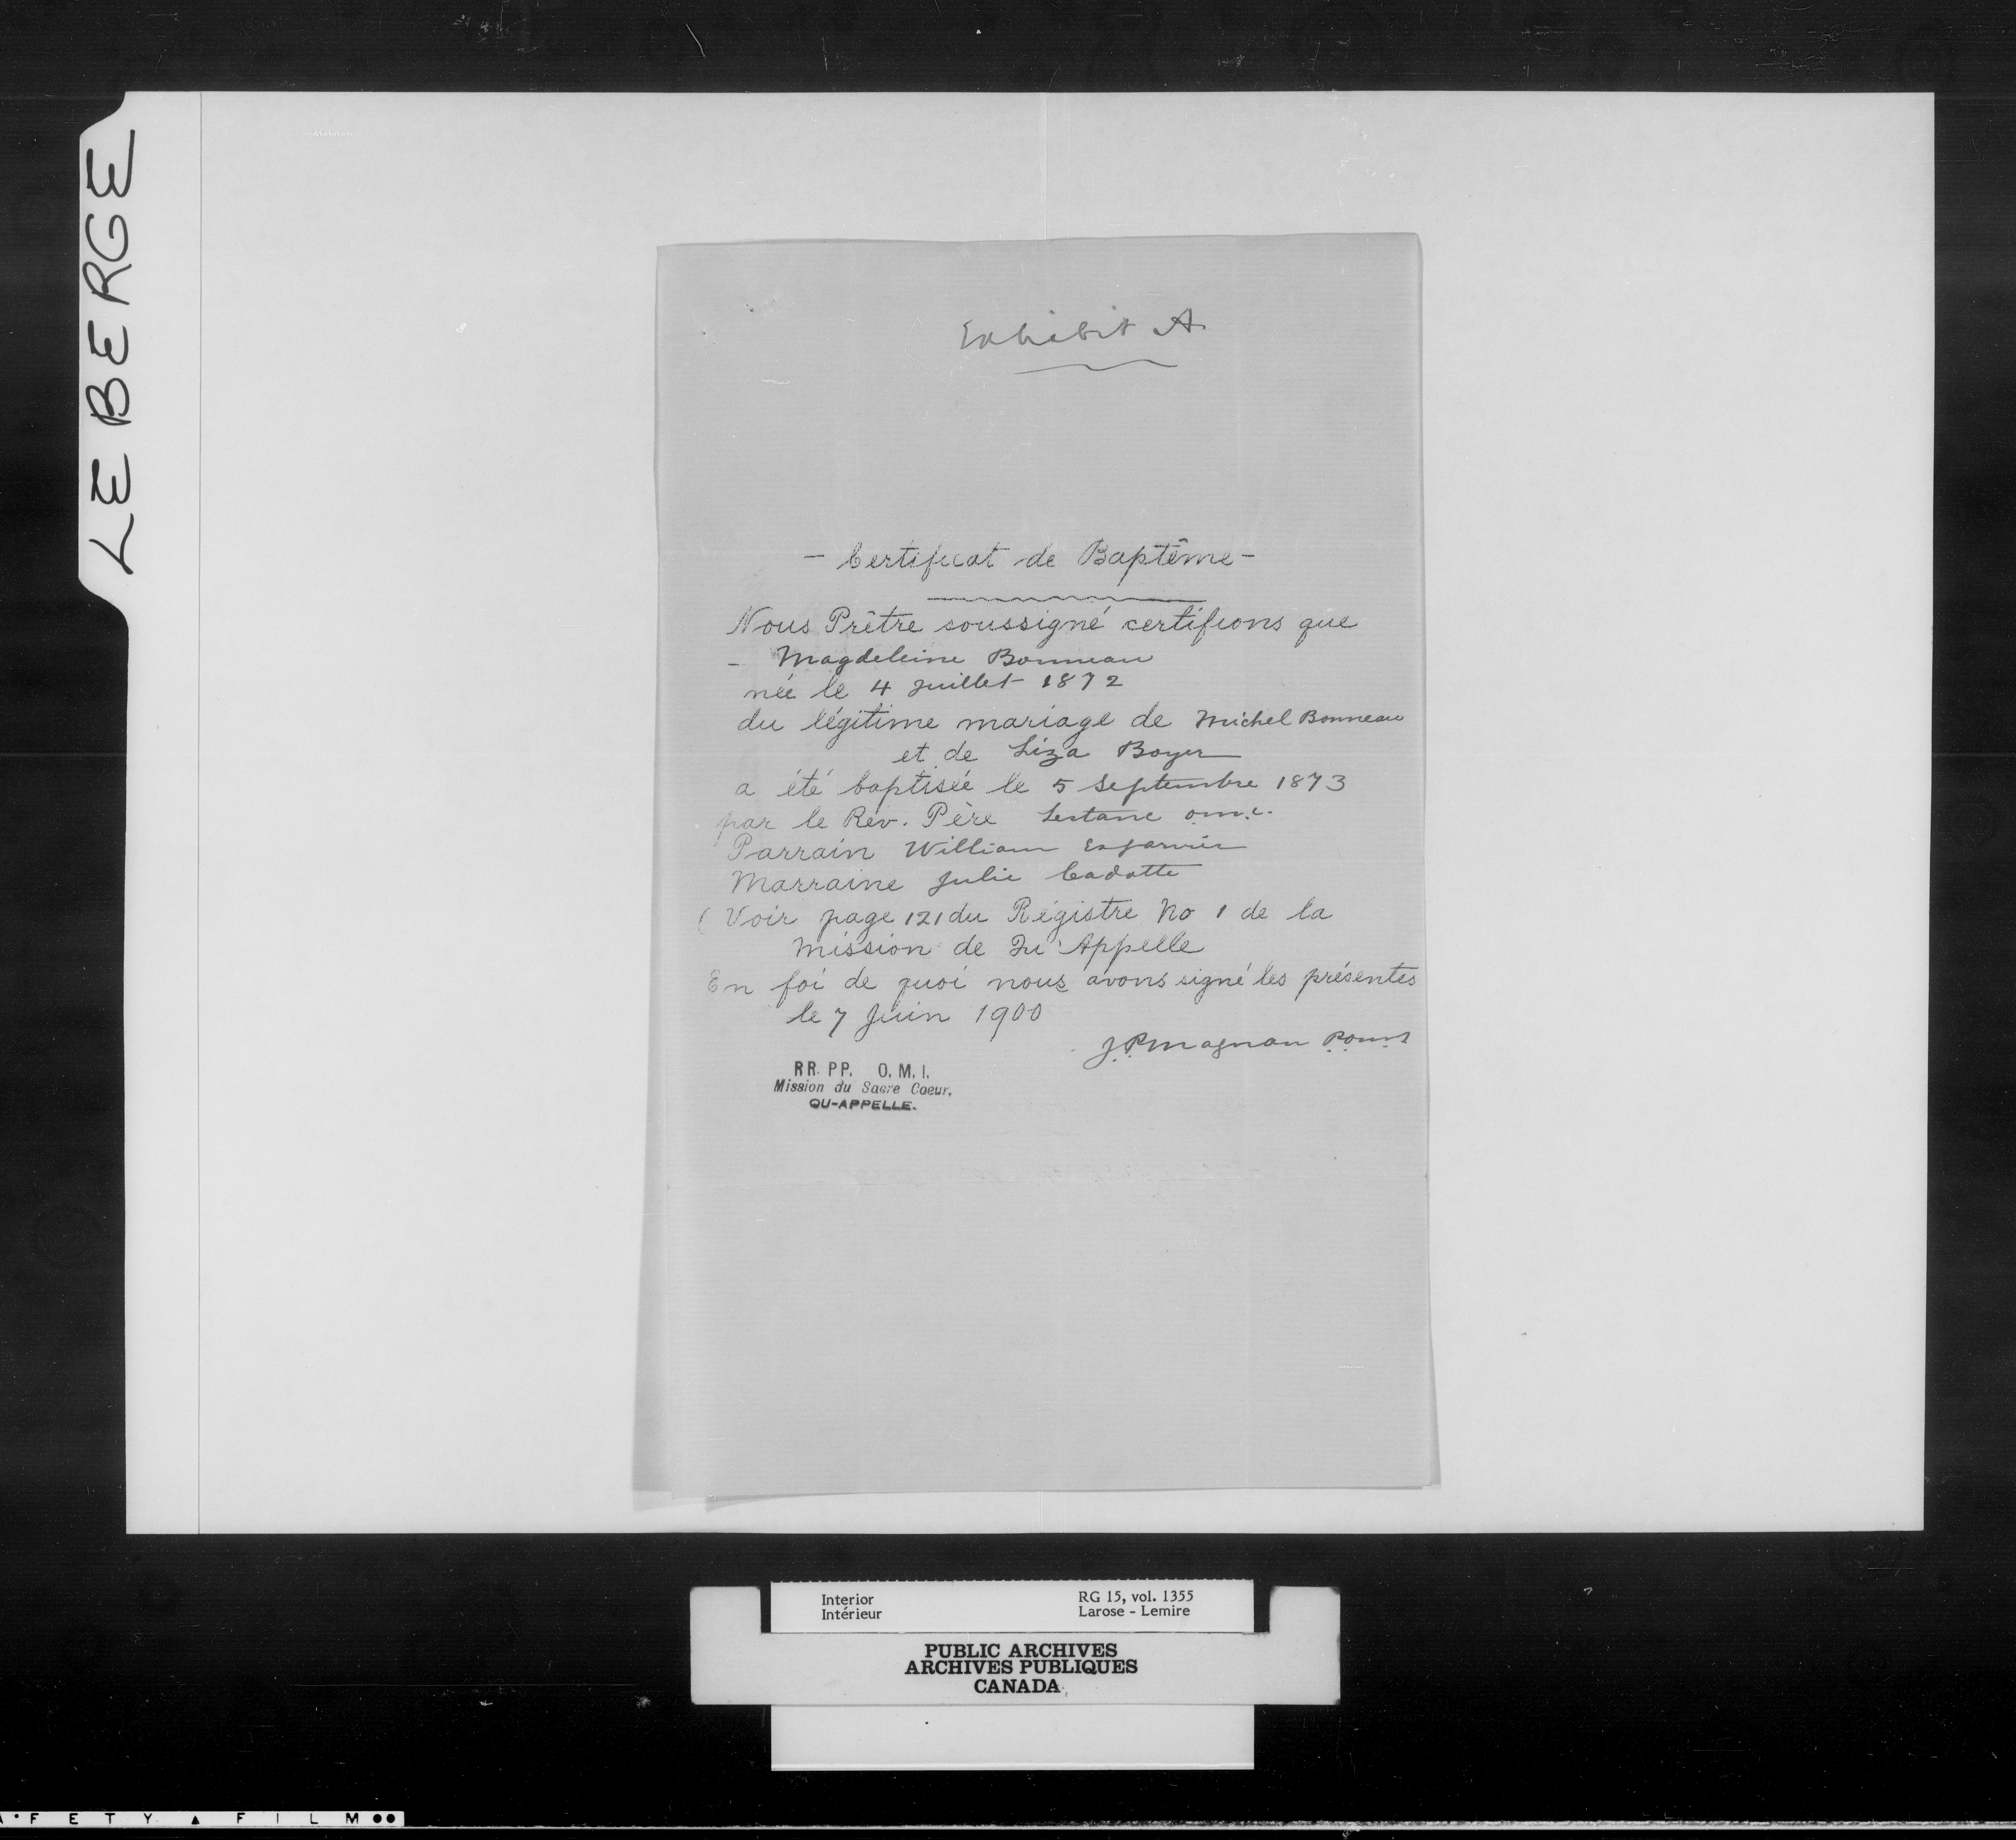 LE BERGE
Exhibit A
- Certificat de Baptême -
Nous Prêtre soussigné certifions que
- Magdeleine Bonneau
née le 4 Juillet 1872
du légitime mariage de Michel Bonneau
et de Liza Boyer
a été baptisée le 5 Septembre 1873
par le Rev. Père Lestanc o.m.i.
Parrain William
Marraine Julie Cadotte
( Voir page 121 du Régistre No 1 de la
Mission de Qu'Appelle
En foi de quoi nous avons signé les présentes
le 7 Juin 1900
J.P. Magnan
RR. PP. O. M. I.
Mission du Sacre Coeur.
QU-APPELLE.
Interior
Intérieur
RG 15, vol. 1355
Larose - Lemire
PUBLIC ARCHIVES
ARCHIVES PUBLIQUES
CANADA
A•FETY ▲ FILM ●●